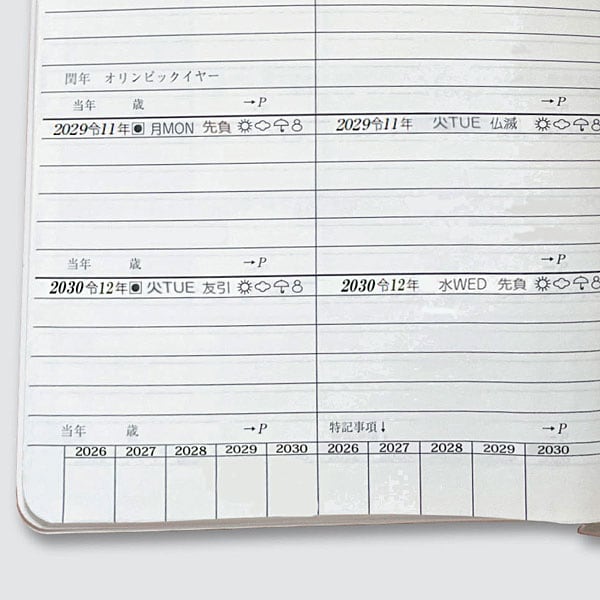 閏年 オリンピックイヤー
当年 歳 →P
→P
2029令11年 月MON 先負
2029令11年 火TUE 仏滅
当年 歳 →P
→P
2030令12年 火TUE 友引
2030令12年 水WED 先負
当年 歳 →P
特記事項↓ →P
2026 2027 2028 2029 2030
2026 2027 2028 2029 2030